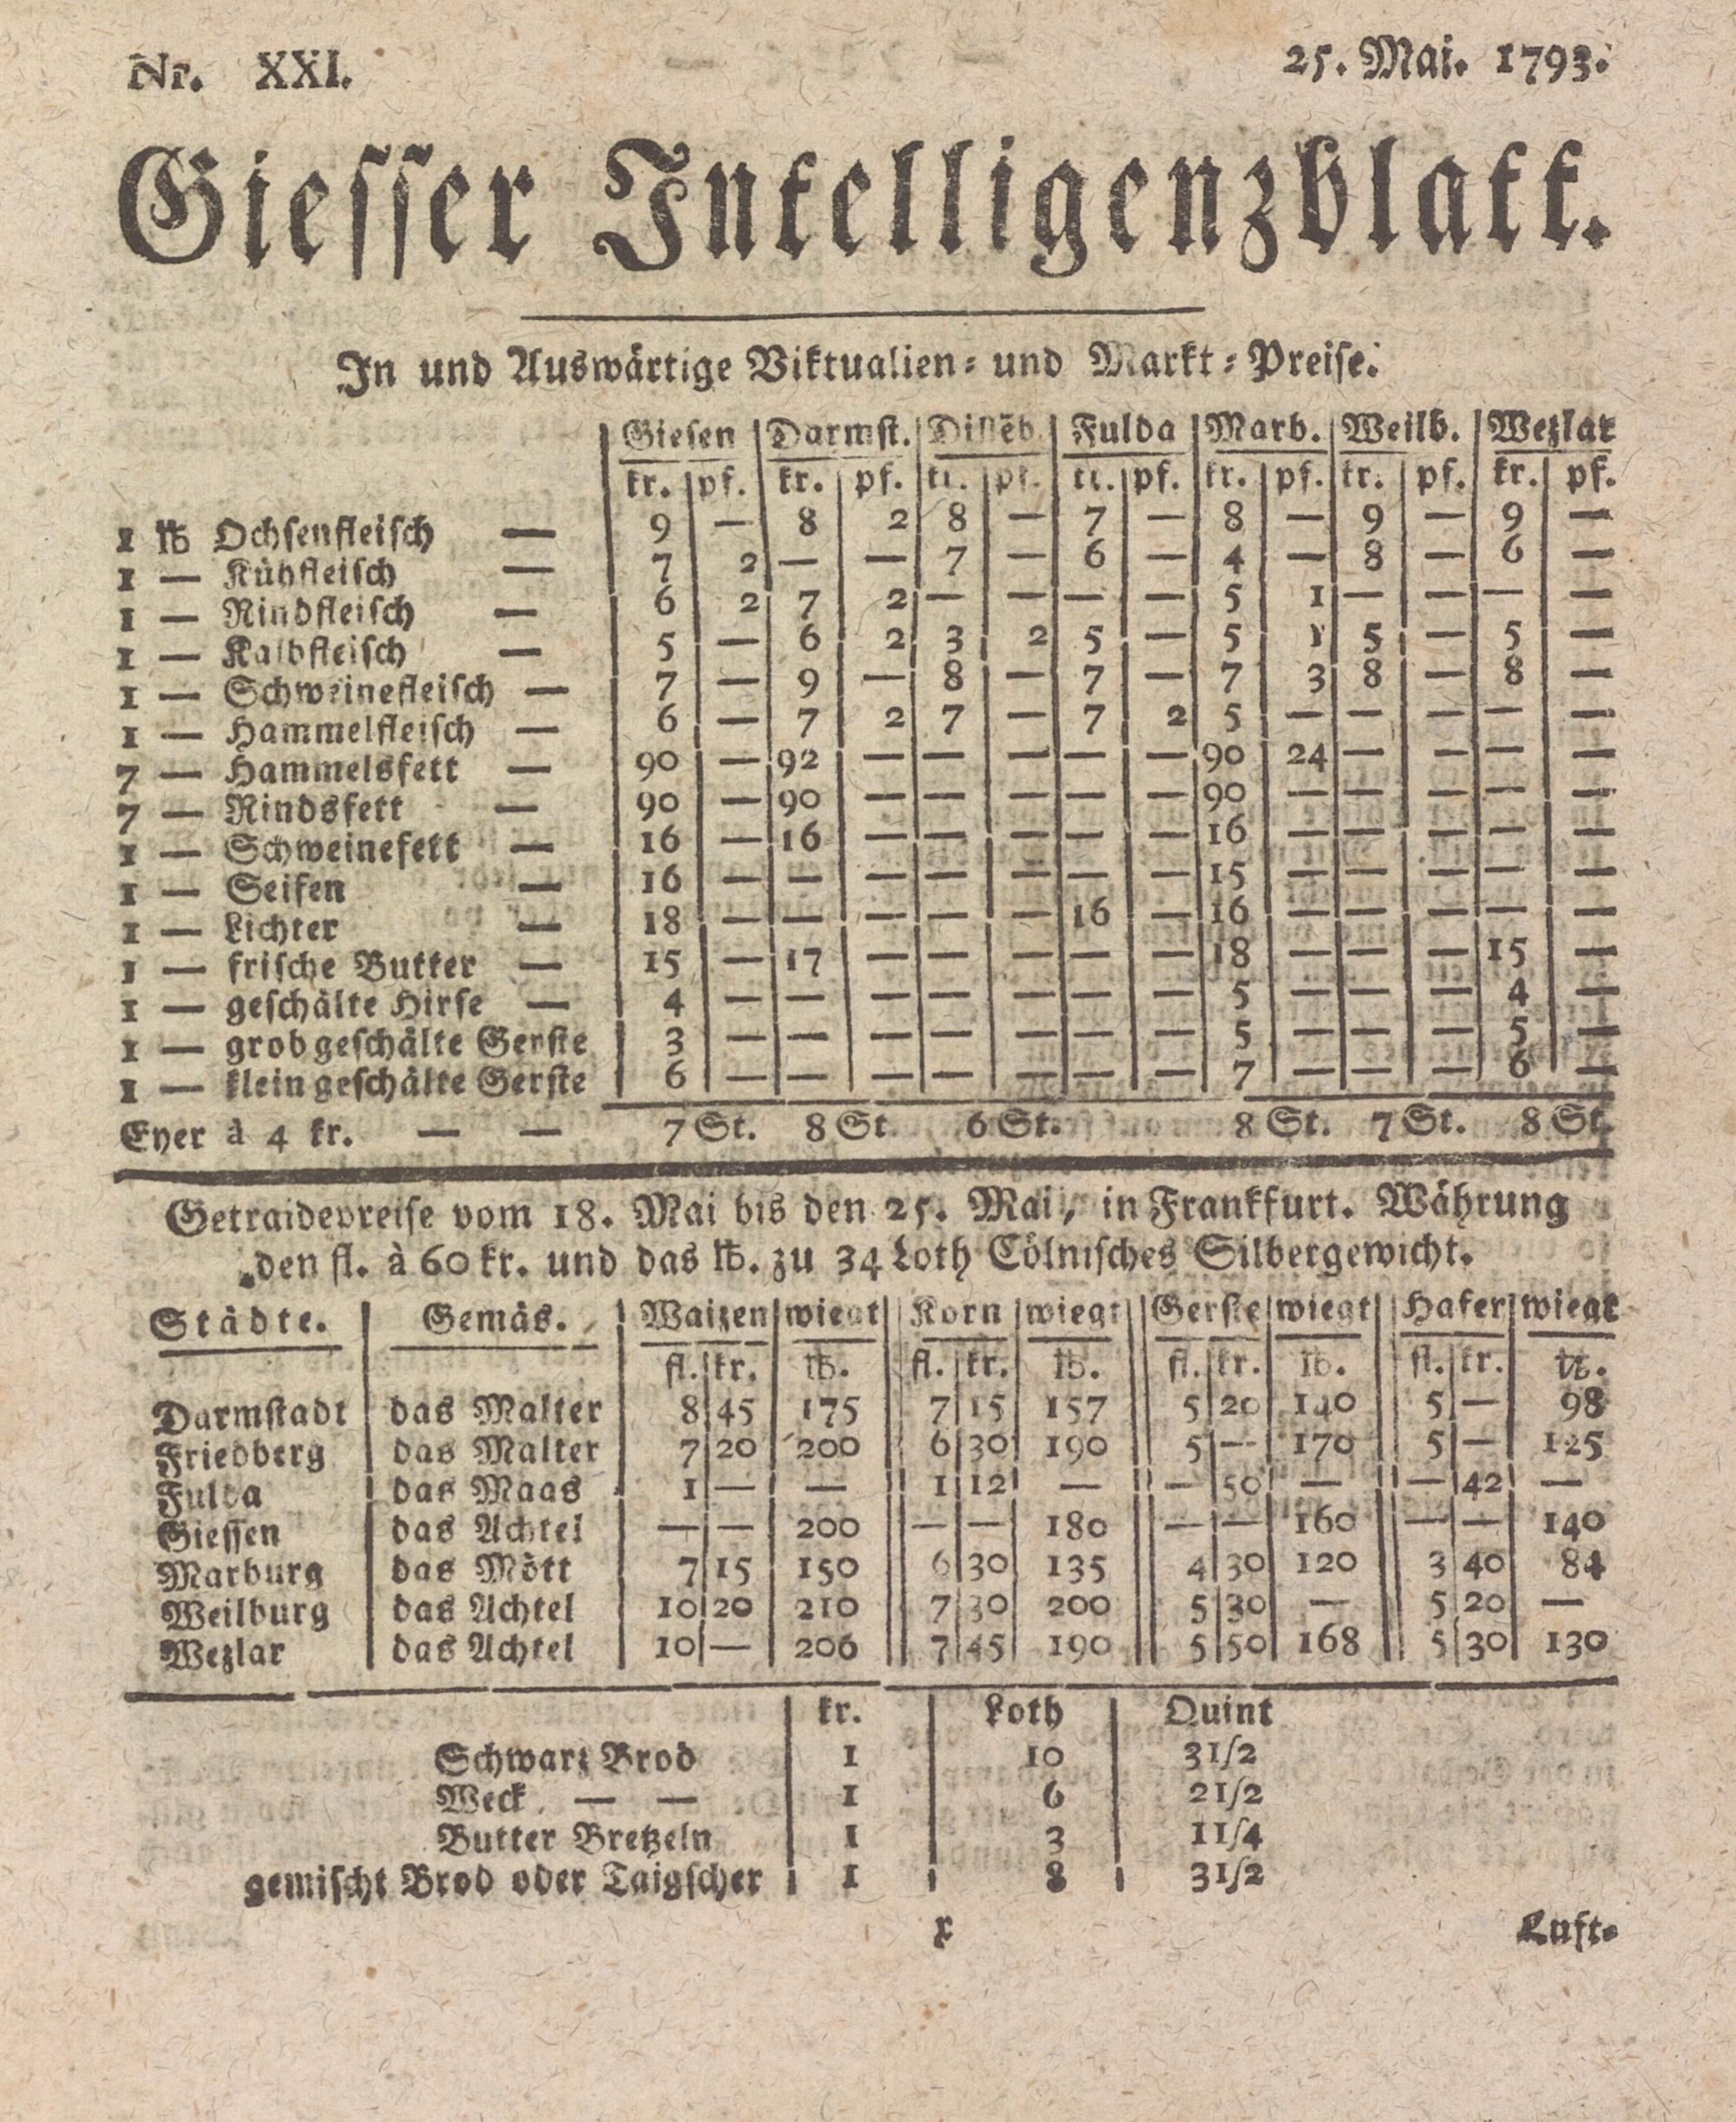 Nr. XXI. 25. Mai. 1793.
Giesser Intelligenzblatt.
In und Auswärtige Viktualien- und Markt-Preise.
Giesen Darmst. Dillēb. Fulda Marb. Weilb. Wezlar
kr. pf. kr. pf. kr. pf. kr. pf. kr. pf. kr. pf. kr. pf.
1 ℔ Ochsenfleisch — 9 — 8 2 8 — 7 — 8 — 9 — 9 —
1 — Kühfleisch — 7 2 — — 7 — 6 — 4 — 8 — 6 —
1 — Rindfleisch — 6 2 7 2 — — — — 5 1 — — — —
1 — Kalbfleisch — 5 — 6 2 3 2 5 — 5 1 5 — 5 —
1 — Schweinefleisch — 7 — 9 — 8 — 7 — 7 3 8 — 8 —
1 — Hammelfleisch — 6 — 7 2 7 — 7 2 5 — — — — —
7 — Hammelsfett — 90 — 92 — — — — — 90 24 — — — —
7 — Rindsfett — 90 — 90 — — — — — 90 — — — — —
1 — Schweinefett — 16 — 16 — — — — — 16 — — — — —
1 — Seifen — 16 — — — — — — — 15 — — — — —
1 — Lichter — 18 — — — — — 16 — 16 — — — — —
1 — frische Butter — 15 — 17 — — — — — 18 — — — 15 —
1 — geschälte Hirse — 4 — — — — — — — 5 — — — 4 —
1 — grob geschälte Gerste 3 — — — — — — — 5 — — — 5 —
1 — klein geschälte Gerste 6 — — — — — — — 7 — — — 6 —
Eyer à 4 kr. — — 7 St. 8 St 6 St. 8 St. 7 St. 8 St.
Getraidepreise vom 18. Mai bis den 25. Mai, in Frankfurt. Währung
den fl. à 60 kr. und das ℔. zu 34 Loth Cölnisches Silbergewicht.
Städte. Gemäs. Waizen wiegt Korn wiegt Gerste wiegt Hafer wiegt
fl. kr. ℔. fl. kr. ℔. fl. kr. ℔. fl. kr. ℔.
Darmstadt das Malter 8 45 175 7 15 157 5 20 140 5 — 98
Friedberg das Malter 7 20 200 6 30 190 5 — 170 5 — 125
Fulda das Maas 1 — — 1 12 — — 50 — — 42 —
Giessen das Achtel — — 200 — — 180 — — 160 — — 140
Marburg das Mött 7 15 150 6 30 135 4 30 120 3 40 84
Weilburg das Achtel 10 20 210 7 30 200 5 30 — 5 20 —
Wezlar das Achtel 10 — 206 7 45 190 5 50 168 5 30 130
kr. Loth Quint
Schwarz Brod 1 10 31/2
Weck — — 1 6 21/2
Butter Bretzeln 1 3 11/4
gemischt Brod oder Taigscher 1 8 31/2
X Luft-